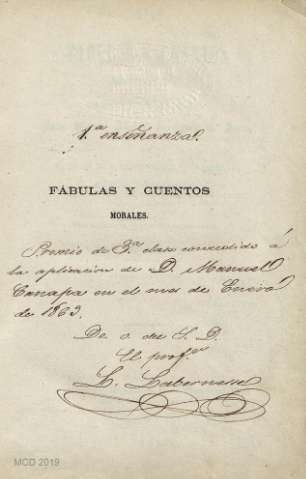 1.ª enseñanza.
FÁBULAS Y CUENTOS
MORALES.
Premio de 3.ª clase concedido á
la aplicacion de D. Manuel
en el mes de Enero
de 1863.
De o. del S. D.
El prof.or
L.
MCD 2019